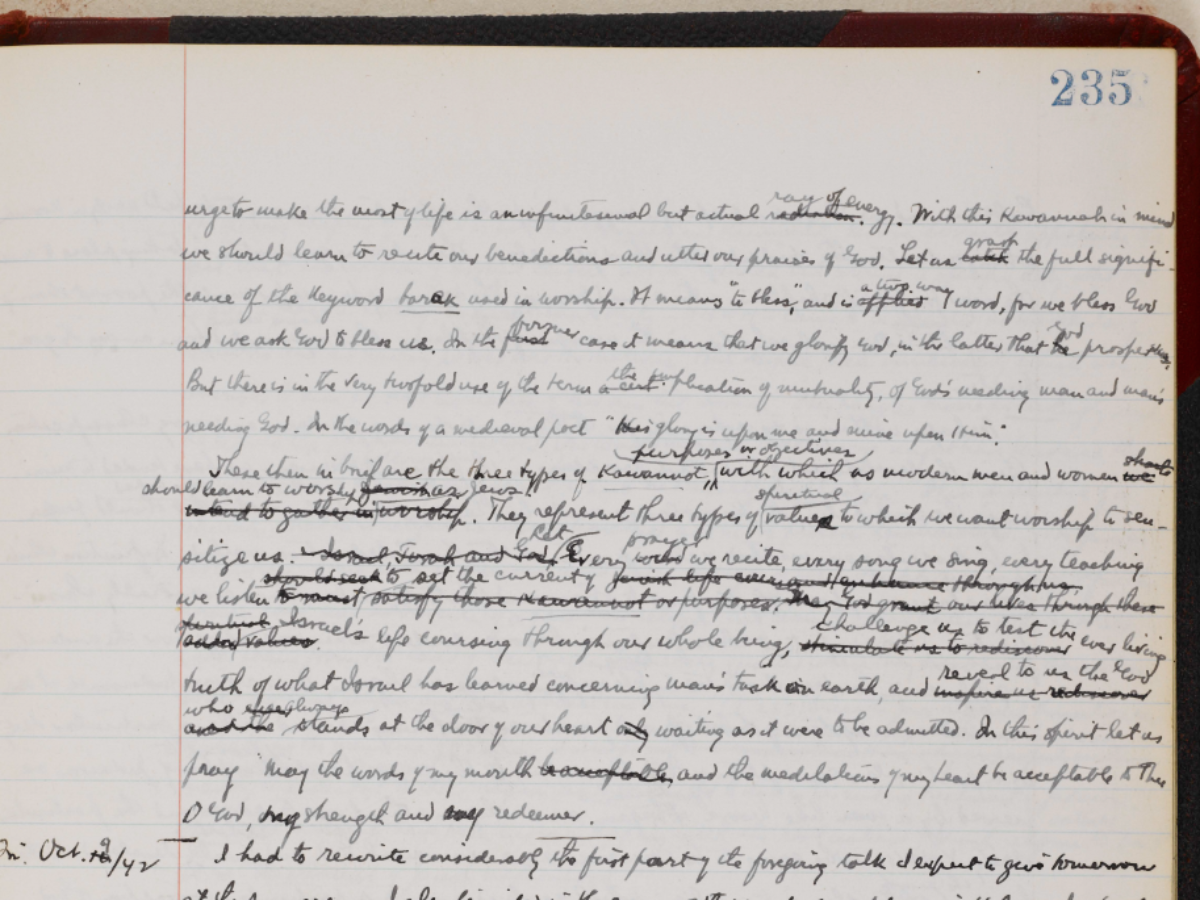 235
urge to make the most of life is an infinitesimal but actual radiation. ray of energy. With this Kawannah in mind
we should learn to recite our benedictions and utter our praises of God. Let us grasp the full signifi-
cance of the keyword barak used in worship. It means "to bless", and is applied a two-way word, for we bless God
and we ask God to bless us. In the first former case it means that we glorify God, in the latter that he God prosper us.
But there is in the very twofold use of the term the implication of mutuality, of God's needing man and man's
needing God. In the words of a medieval poet "His glory is upon me and mine upon Him."
These then in brief are the three types of Kawannot, purposes or objectives with which as modern men and women we should
should learn to worship Jewish as Jews
intend to gather in worship. They represent three types of spiritual values to which we want worship to sen-
sitize us. Israel, Torah and God. Let Every word prayer we recite, every song we sing, every teaching
should seek to set the current of Jewish life
we listen to must satisfy those Kawannot or purposes. May God grant our lives through these
spiritual Israel's life coursing through our whole being, stimulate us to rediscover challenge us to test the ever living
values.
truth of what Israel has learned concerning man's task on earth, and inspire us rediscover reveal to us the God
who ever always
and the stands at the door of our heart only waiting as it were to be admitted. In this spirit let us
pray "May the words of my mouth be acceptable, and the meditations of my heart be acceptable to Thee
O God, my strength and my redeemer.
Fri. Oct. /42 I had to rewrite considerably the first part of the foregoing talk I expect to give tomorrow